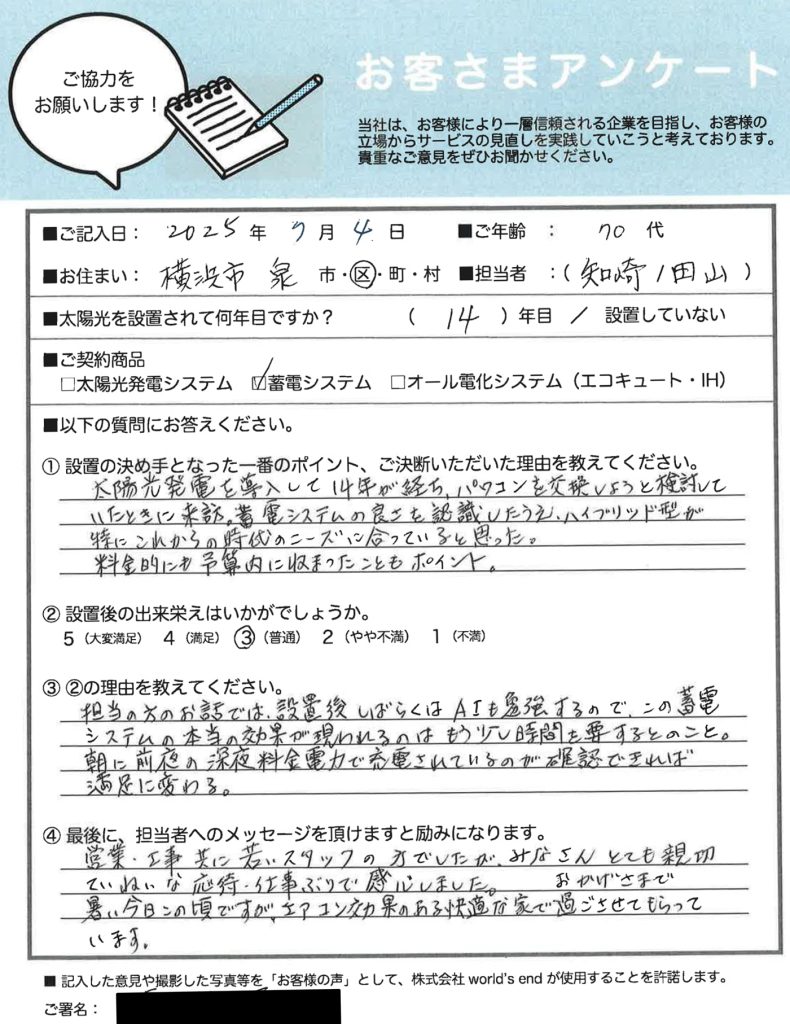 ご協力を
お願いします！
お客さまアンケート
当社は、お客様により一層信頼される企業を目指し、お客様の
立場からサービスの見直しを実践していこうと考えております。
貴重なご意見をぜひお聞かせください。
■ご記入日： 2025 年 7 月 4 日 ■ご年齢 ： 70 代
■お住まい： 横浜市 泉 市・区・町・村 ■担当者 ：( 知崎/田山 )
■太陽光を設置されて何年目ですか？ ( 14 ) 年目 / 設置していない
■ご契約商品
□太陽光発電システム ☑蓄電システム □オール電化システム（エコキュート・IH）
■以下の質問にお答えください。
① 設置の決め手となった一番のポイント、ご決断いただいた理由を教えてください。
太陽光発電を導入して14年が経ち、パワコンを交換しようと検討して
いたときに来訪。蓄電システムの良さを認識したうえ、ハイブリッド型が
特にこれからの時代のニーズに合っていると思った。
料金的にも予算内に収まったこともポイント。
② 設置後の出来栄えはいかがでしょうか。
5（大変満足） 4（満足） ③（普通） 2（やや不満） 1（不満）
③ ②の理由を教えてください。
担当の方のお話では、設置後しばらくはAIも勉強するので、この蓄電
システムの本当の効果が現われるのはもう少し時間を要するとのこと。
朝に前夜の深夜料金電力で充電されているのが確認できれば
満足に変わる。
④ 最後に、担当者へのメッセージを頂けますと励みになります。
営業・工事共に若いスタッフの方でしたが、みなさんとても親切
ていねいな応待・仕事ぶりで感心しました。 おかげさまで
暑い今日この頃ですが、エアコン効果のある快適な家で過ごさせてもらって
います。
■ 記入した意見や撮影した写真等を「お客様の声」として、株式会社 world's end が使用することを許諾します。
ご署名：